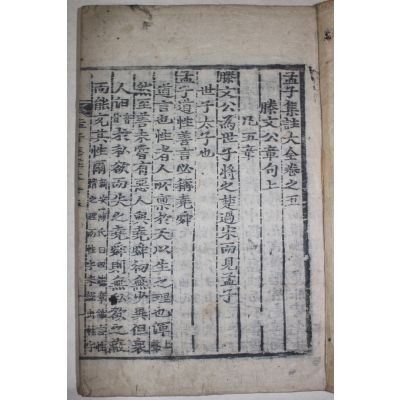 孟子集註大全卷之五
滕文公章句上
凡五章
滕文公爲世子將之楚過宋而見孟子
世子太子也
孟子道性善言必稱堯舜
道言也性者人所稟於天以生之理也渾上聲
然至善未嘗有惡人與堯舜初無少異但衆
人汩音骨於私欲而失之堯舜則無私欲之蔽
而能充其性爾